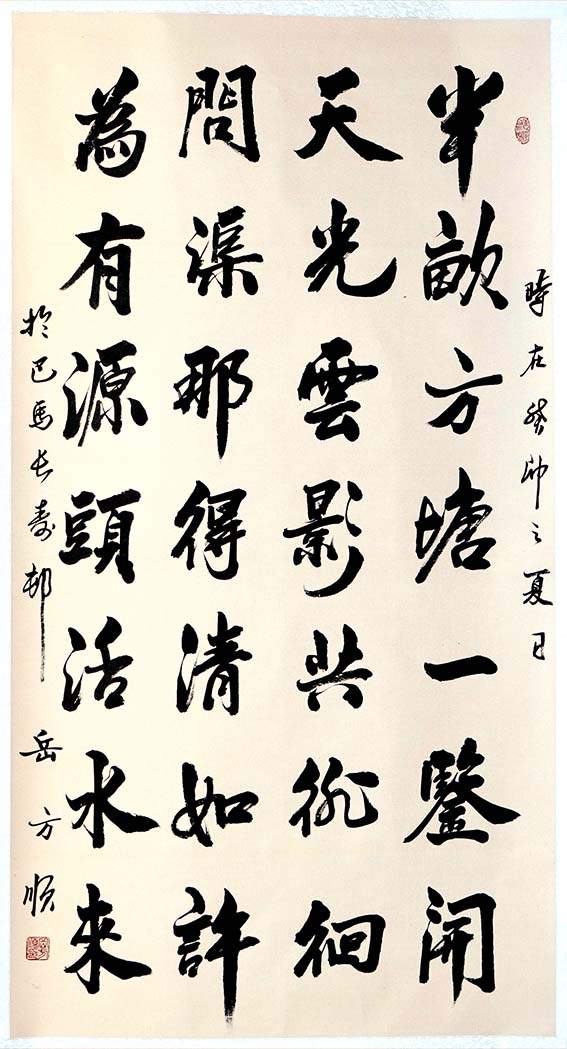 時在癸卯之夏日
半畝方塘一鑿開
天光雲影共徘徊
問渠那得清如許
為有源頭活水來
於巴馬长寿邨
岳方順